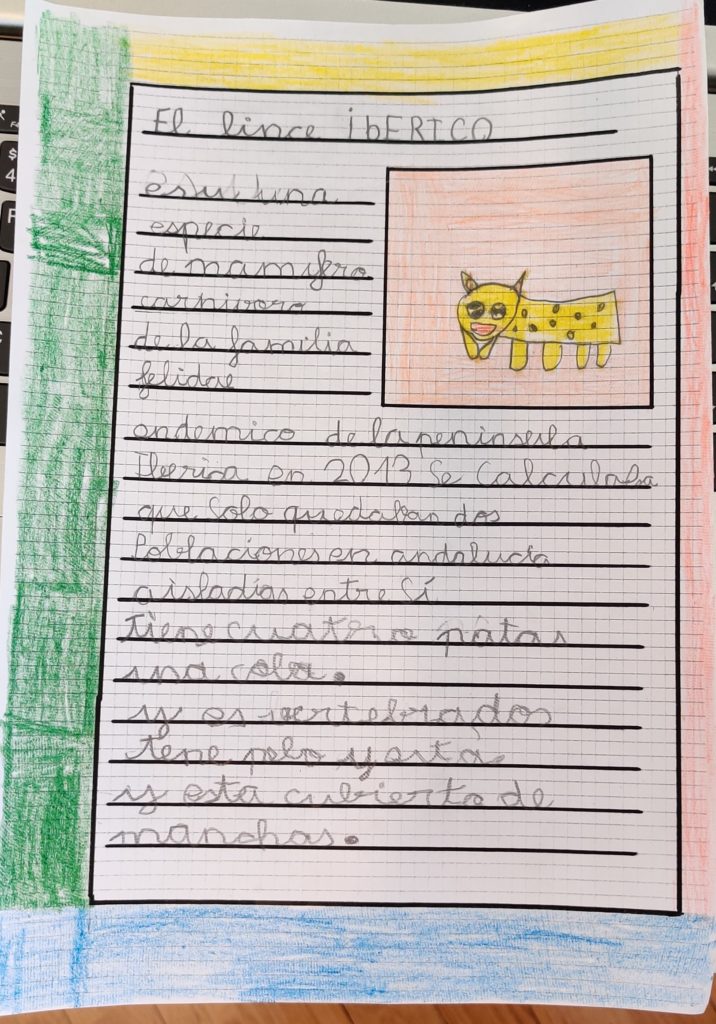 El lince ibERICO
es una
especie
de mamifero
carnivoro
de la familia
felidae
endemico de la peninsula
Iberica en 2013 Se Calculaba
que solo quedaban dos
Poblaciones en andalucia
aisladias entre Sí
tiene cuatoro patas
una cola.
y es vertebrados
tene pelo y esta
y está cubierto de
manchas.